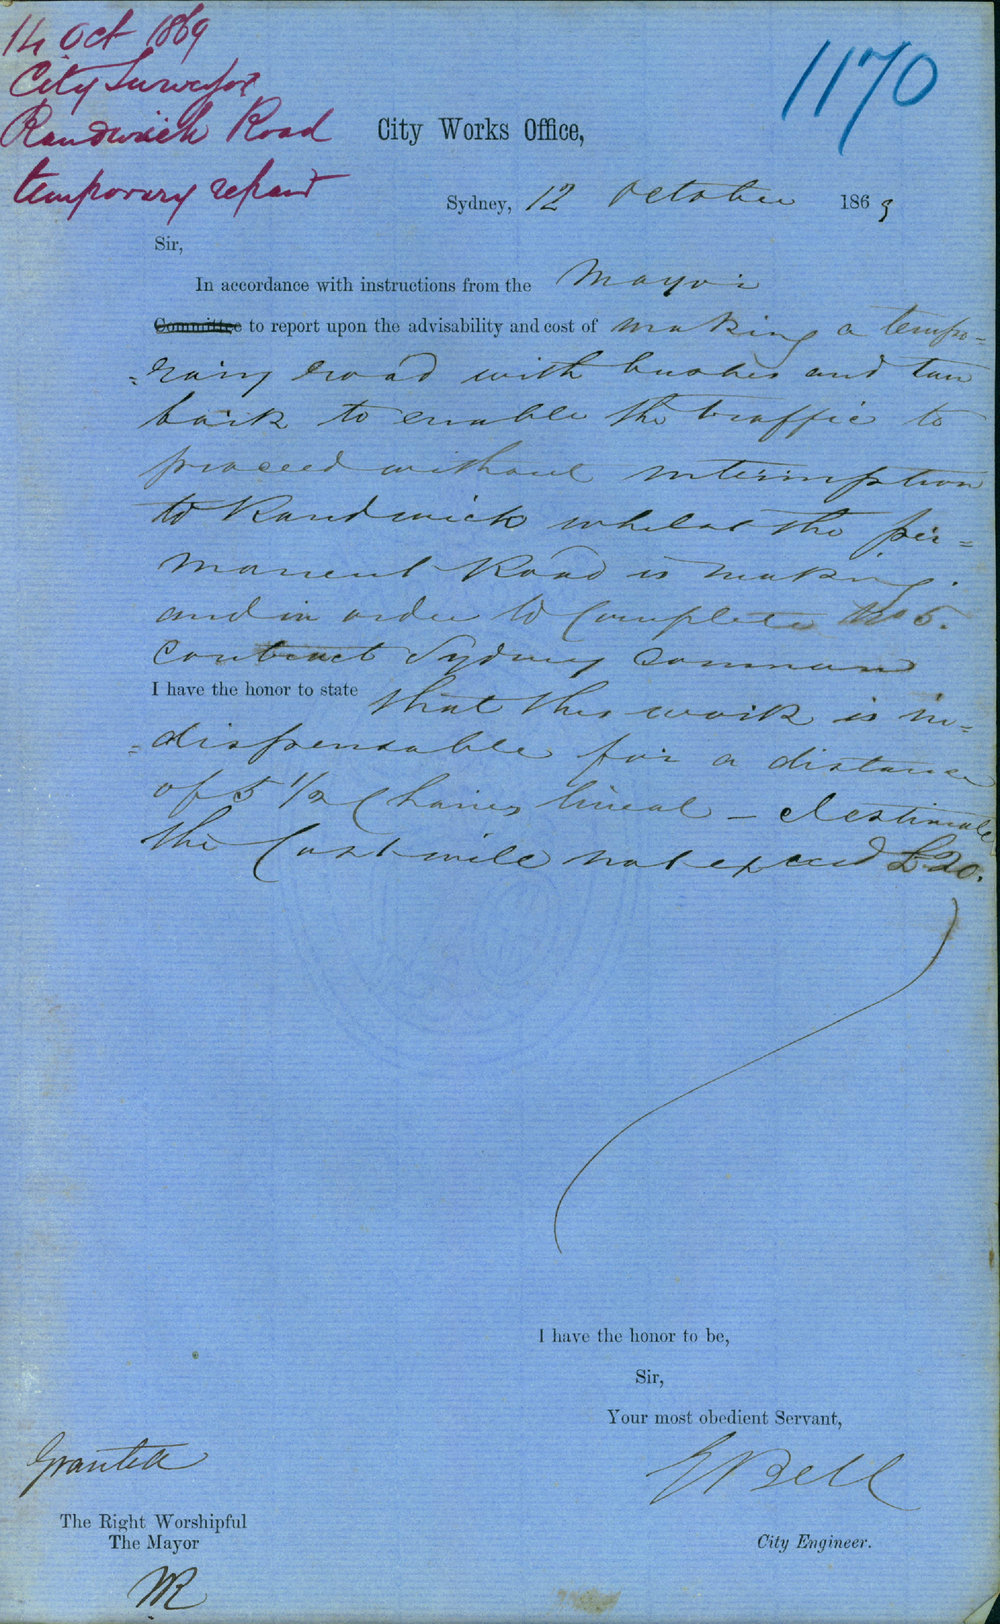 14 Oct 1869
City Surveyor
Randwick Road
temporary repair
1170
City Works Office,
Sydney, 12 October 1869
Sir,
In accordance with instructions from the Mayor
Committee to report upon the advisability and cost of making a tempo=
=rary road with bushes and tan
bark to enable the traffic to
proceed without interruption
to Randwick whilst the per=
manent Road is making.
and in order to Complete No 5.
contract Sydney Common
I have the honor to state that this work is in=
=dispensable for a distance
of 5 1/2 Chains lineal – I estimate
the Cost will not exceed £20.
I have the honor to be,
Sir,
Your most obedient Servant,
E Bell
City Engineer.
Granted
The Right Worshipful
The Mayor
WR